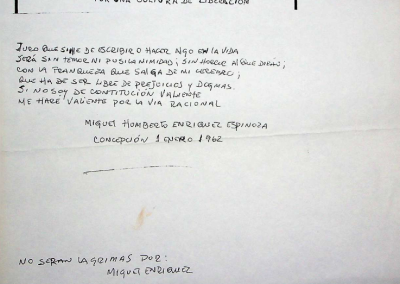 POR UNA CULTURA DE LIBERACION
JURO QUE SI HE DE ESCRIBIR O HACER ALGO EN LA VIDA
SERÁ SIN TEMOR NI PUSILANIMIDAD; SIN HORROR AL QUE DIRAN;
CON LA FRANQUEZA QUE SALGA DE MI CEREBRO;
QUE HA DE SER LIBRE DE PREJUICIOS Y DOGMAS.
SI NO SOY DE CONSTITUCIÓN VALIENTE
ME HARE VALIENTE POR LA VIA RACIONAL
MIGUEL HUMBERTO ENRIQUEZ ESPINOZA
CONCEPCIÓN 1 ENERO 1962
NO SERAN LAGRIMAS POR:
MIGUEL ENRIQUEZ